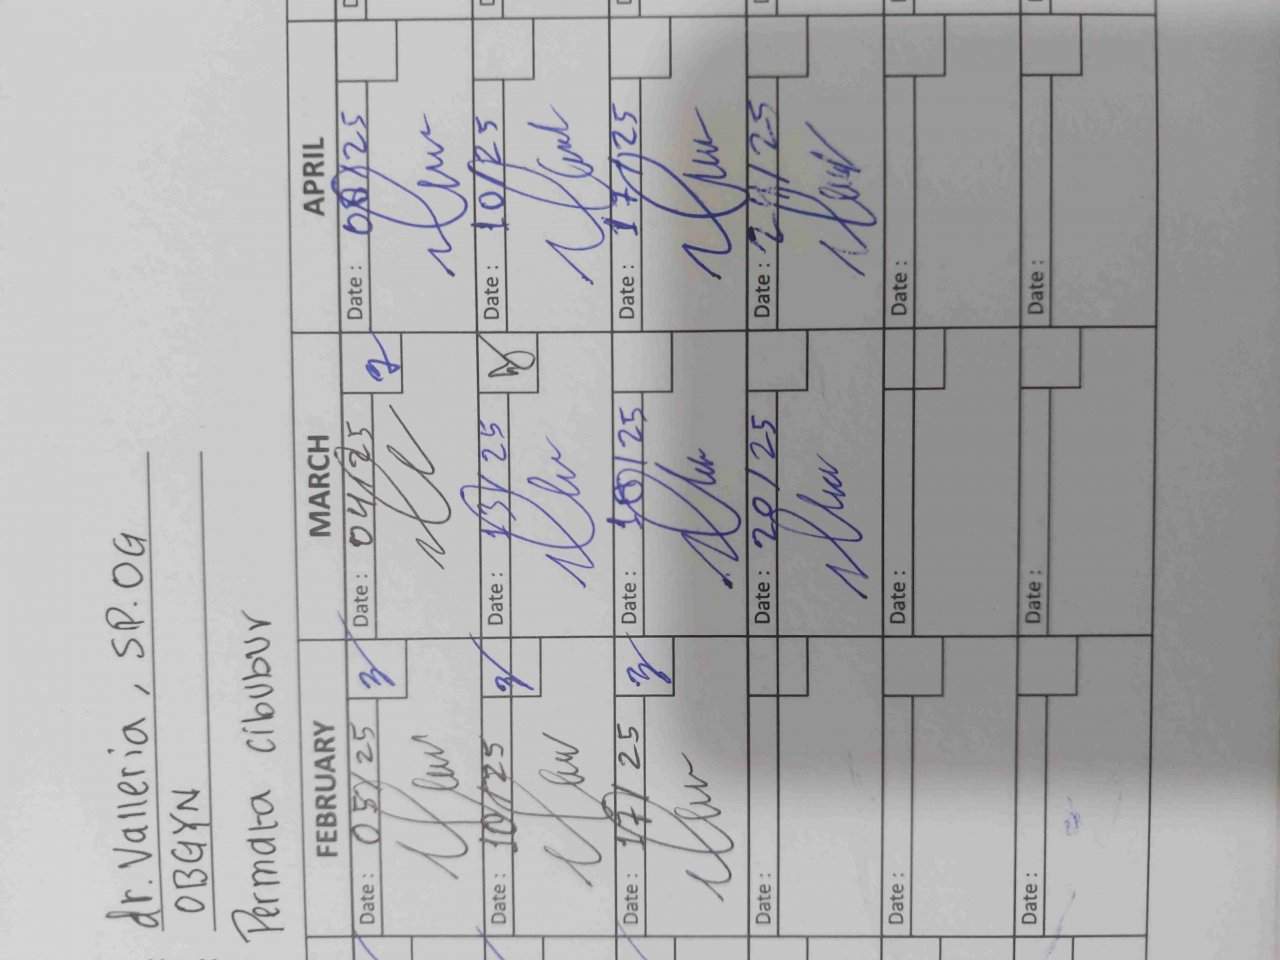 dr. Valleria, SP.OG
OBGYN
Permata cibubur
FEBRUARY MARCH APRIL
Date : 05/25 Date : 04/25 Date : 08/25
Date : 10/25 Date : 13/25 Date : 10/25
Date : 17/25 Date : 18/25 Date : 17/25
Date : Date : 20/25 Date : 24/25
Date : Date : Date :
Date : Date : Date :